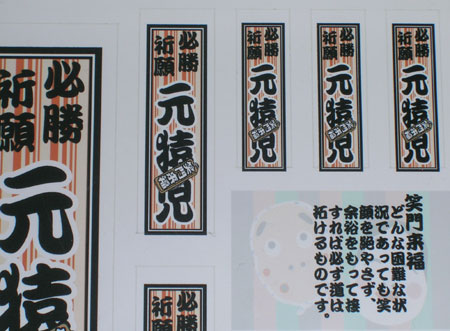 必勝
祈願
元猿
必勝
祈願
元猿児
必勝
祈願
元猿児
必勝
祈願
元猿児
必勝
祈願
元猿児
必勝
祈願
笑門来福
どんな困難な状
況であっても笑
顔を絶やさず、
余裕をもって接
すれば必ず道は
拓けるものです。